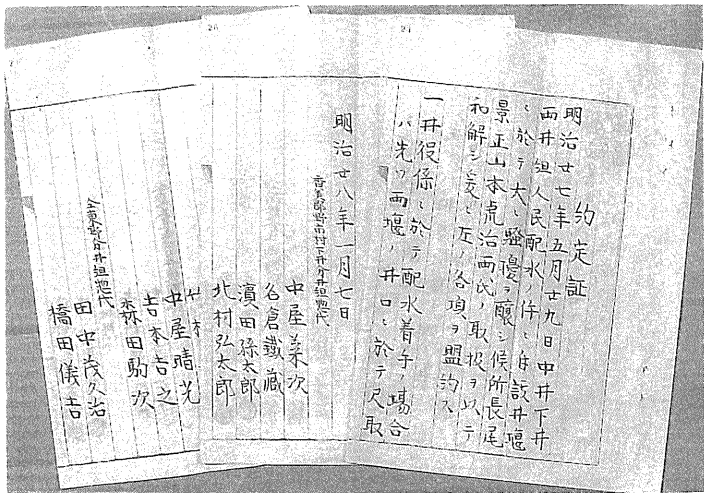 約定証
明治廿七年五月廿九日中井下井
両井組人民配水ノ件ニ付該井堰
ニ於テ大ニ騒擾ヲ醸シ候所長尾
景正山本虎治両氏ノ取扱ヲ以テ
和解シ茲ニ左ノ各項ヲ盟約ス
一井役係ニ於テ配水着手ノ場合
ハ先ツ両堰ノ井口ニ於テ尺取
明治廿八年一月七日
香美郡野市村下井分井組惣代
中屋兼次
名倉鐵藏
濱田孫太郎
北村弘太郎
中屋晴光
吉本吉之
森田駒次
仝東野分井組惣代
田中茂久治
橋田儀吉